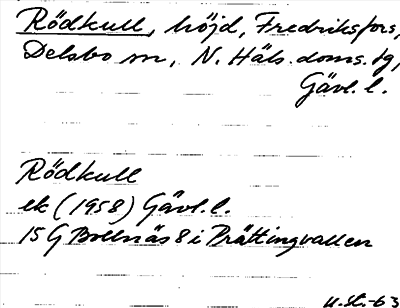 Rödkull, höjd, Fredriksfors,
Delsbo sn, N. Häls. doms. tg,
Gävl. l.
Rödkull
ek (1958) Gävl. l.
15 G Bollnäs 8 i Prättingvallen
U.St.-63